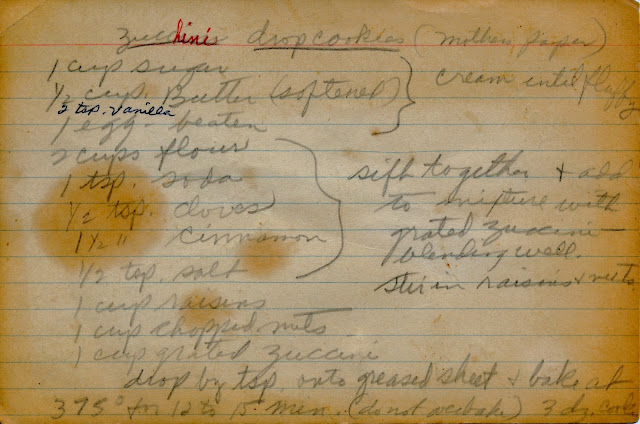 zucchinis drop cookies (mothers paper)
1 cup sugar
cream until fluffy
1/2 cup Butter (softened)
2 tsp. Vanilla
1 egg - beaten
2 cups flour
1 tsp. soda
sift together + add
1/2 tsp. cloves
to mixture with
1 1/2 " cinnamon
grated zuccini
blending well.
1/2 tsp. salt
stir in raisins + nuts
1 cup raisins
1 cup chopped nuts
1 cup grated zuccini
drop by tsp. onto greased sheet + bake at
375° for 12 to 15 min. (do not overbake) 3 dz.